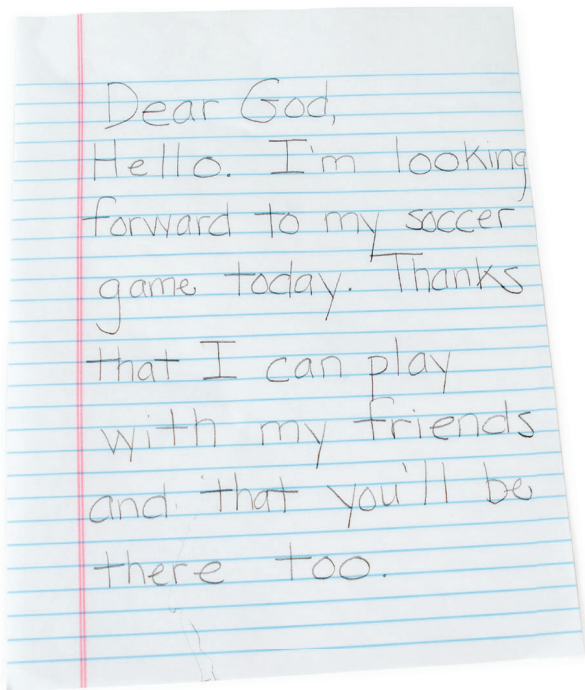 Dear God,
Hello. I'm looking
forward to my soccer
game today. Thanks
that I can play
with my friends
and that you'll be
there too.